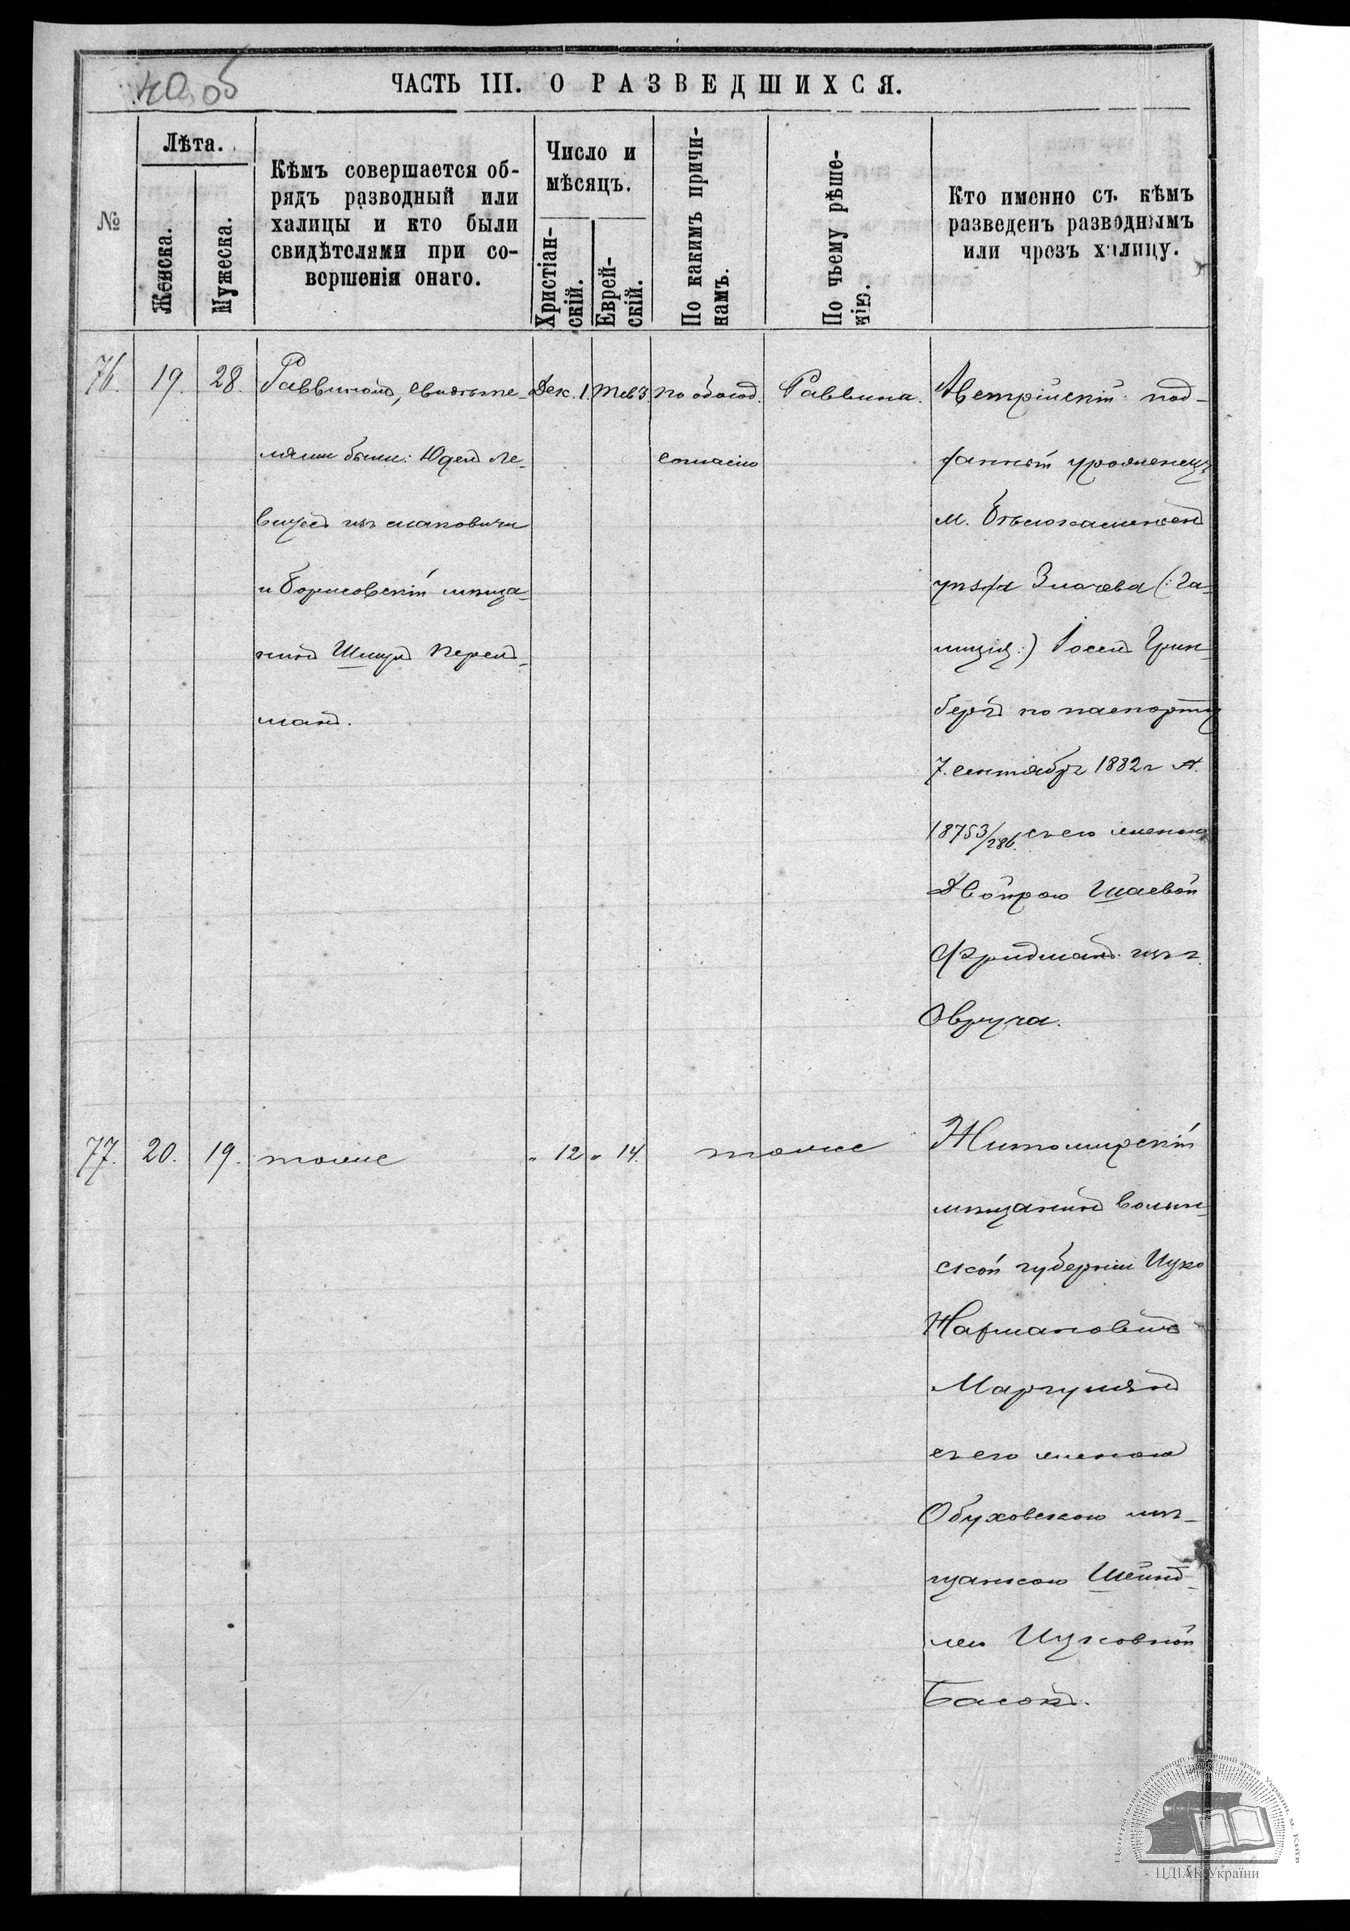 40 об
ЧАСТЬ III. О РАЗВЕДШИХСЯ.
№
Лѣта.
Женска.
Мужеска.
Кѣмъ совершается об-
рядъ разводный или
халицы и кто были
свидѣтелями при со-
вершеніи онаго.
Число и
мѣсяцъ.
Христіан-
скій.
Еврей-
скій.
По какимъ причи-
намъ.
По чьему рѣше-
нію.
Кто именно съ кѣмъ
разведенъ разводнымъ
или чрезъ халицу.
76. 19. 28. Раввиномъ, свидѣте-
лями были: Юдель Ле-
и Борисовскій мѣща-
нинъ Шмуль Перель-
манъ.
Дек. 1. Тев 3. по обоюд.
согласію
Раввина.
Австрійскій под-
данный уроженецъ
м. Бѣлокаменъ
уѣзда Злочева (: Га-
лиція :) Іосель Грин-
бергъ по паспорту
7. сентября 1882 г №
18753/286. съ его женою
Двойрою Шаевой
Фридманъ изъ г.
Овруча.
77. 20. 19. тоже „ 12 „ 14. тоже
Житомирскій
мѣщанинъ Волын-
ской губерніи Ицко
Нахмановичъ
Маргулянъ
съ его женою
Обуховскою мѣ-
щанкою Шейнд-
лею Ицковной
Басокъ.
Центральний державний історичний архів України, м. Київ
ЦДІАК України